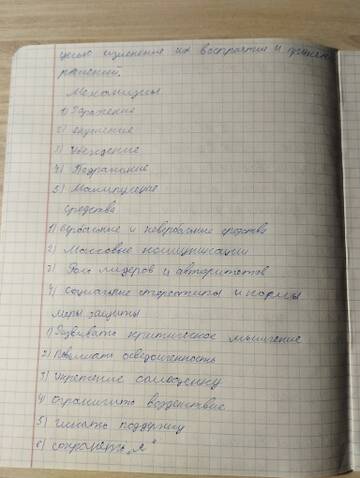 целью изменения их восприятия и принят
решений.
Механизмы
1) Заражение
2) Внушение
3) Убеждение
4) Подражание
5) Манипуляция
средства
1) вербальные и невербальные средства
2) Массовые коммуникации
3) Роль лидеров и авторитетов
4) Социальные стереотипы и нормы
меры защиты
1) Развивать критическое мышление
2) Повышать осведомленность
3) укрепление самооценки
4) ограничить воздействие
5) искать поддержку
6) сохранять „Я"